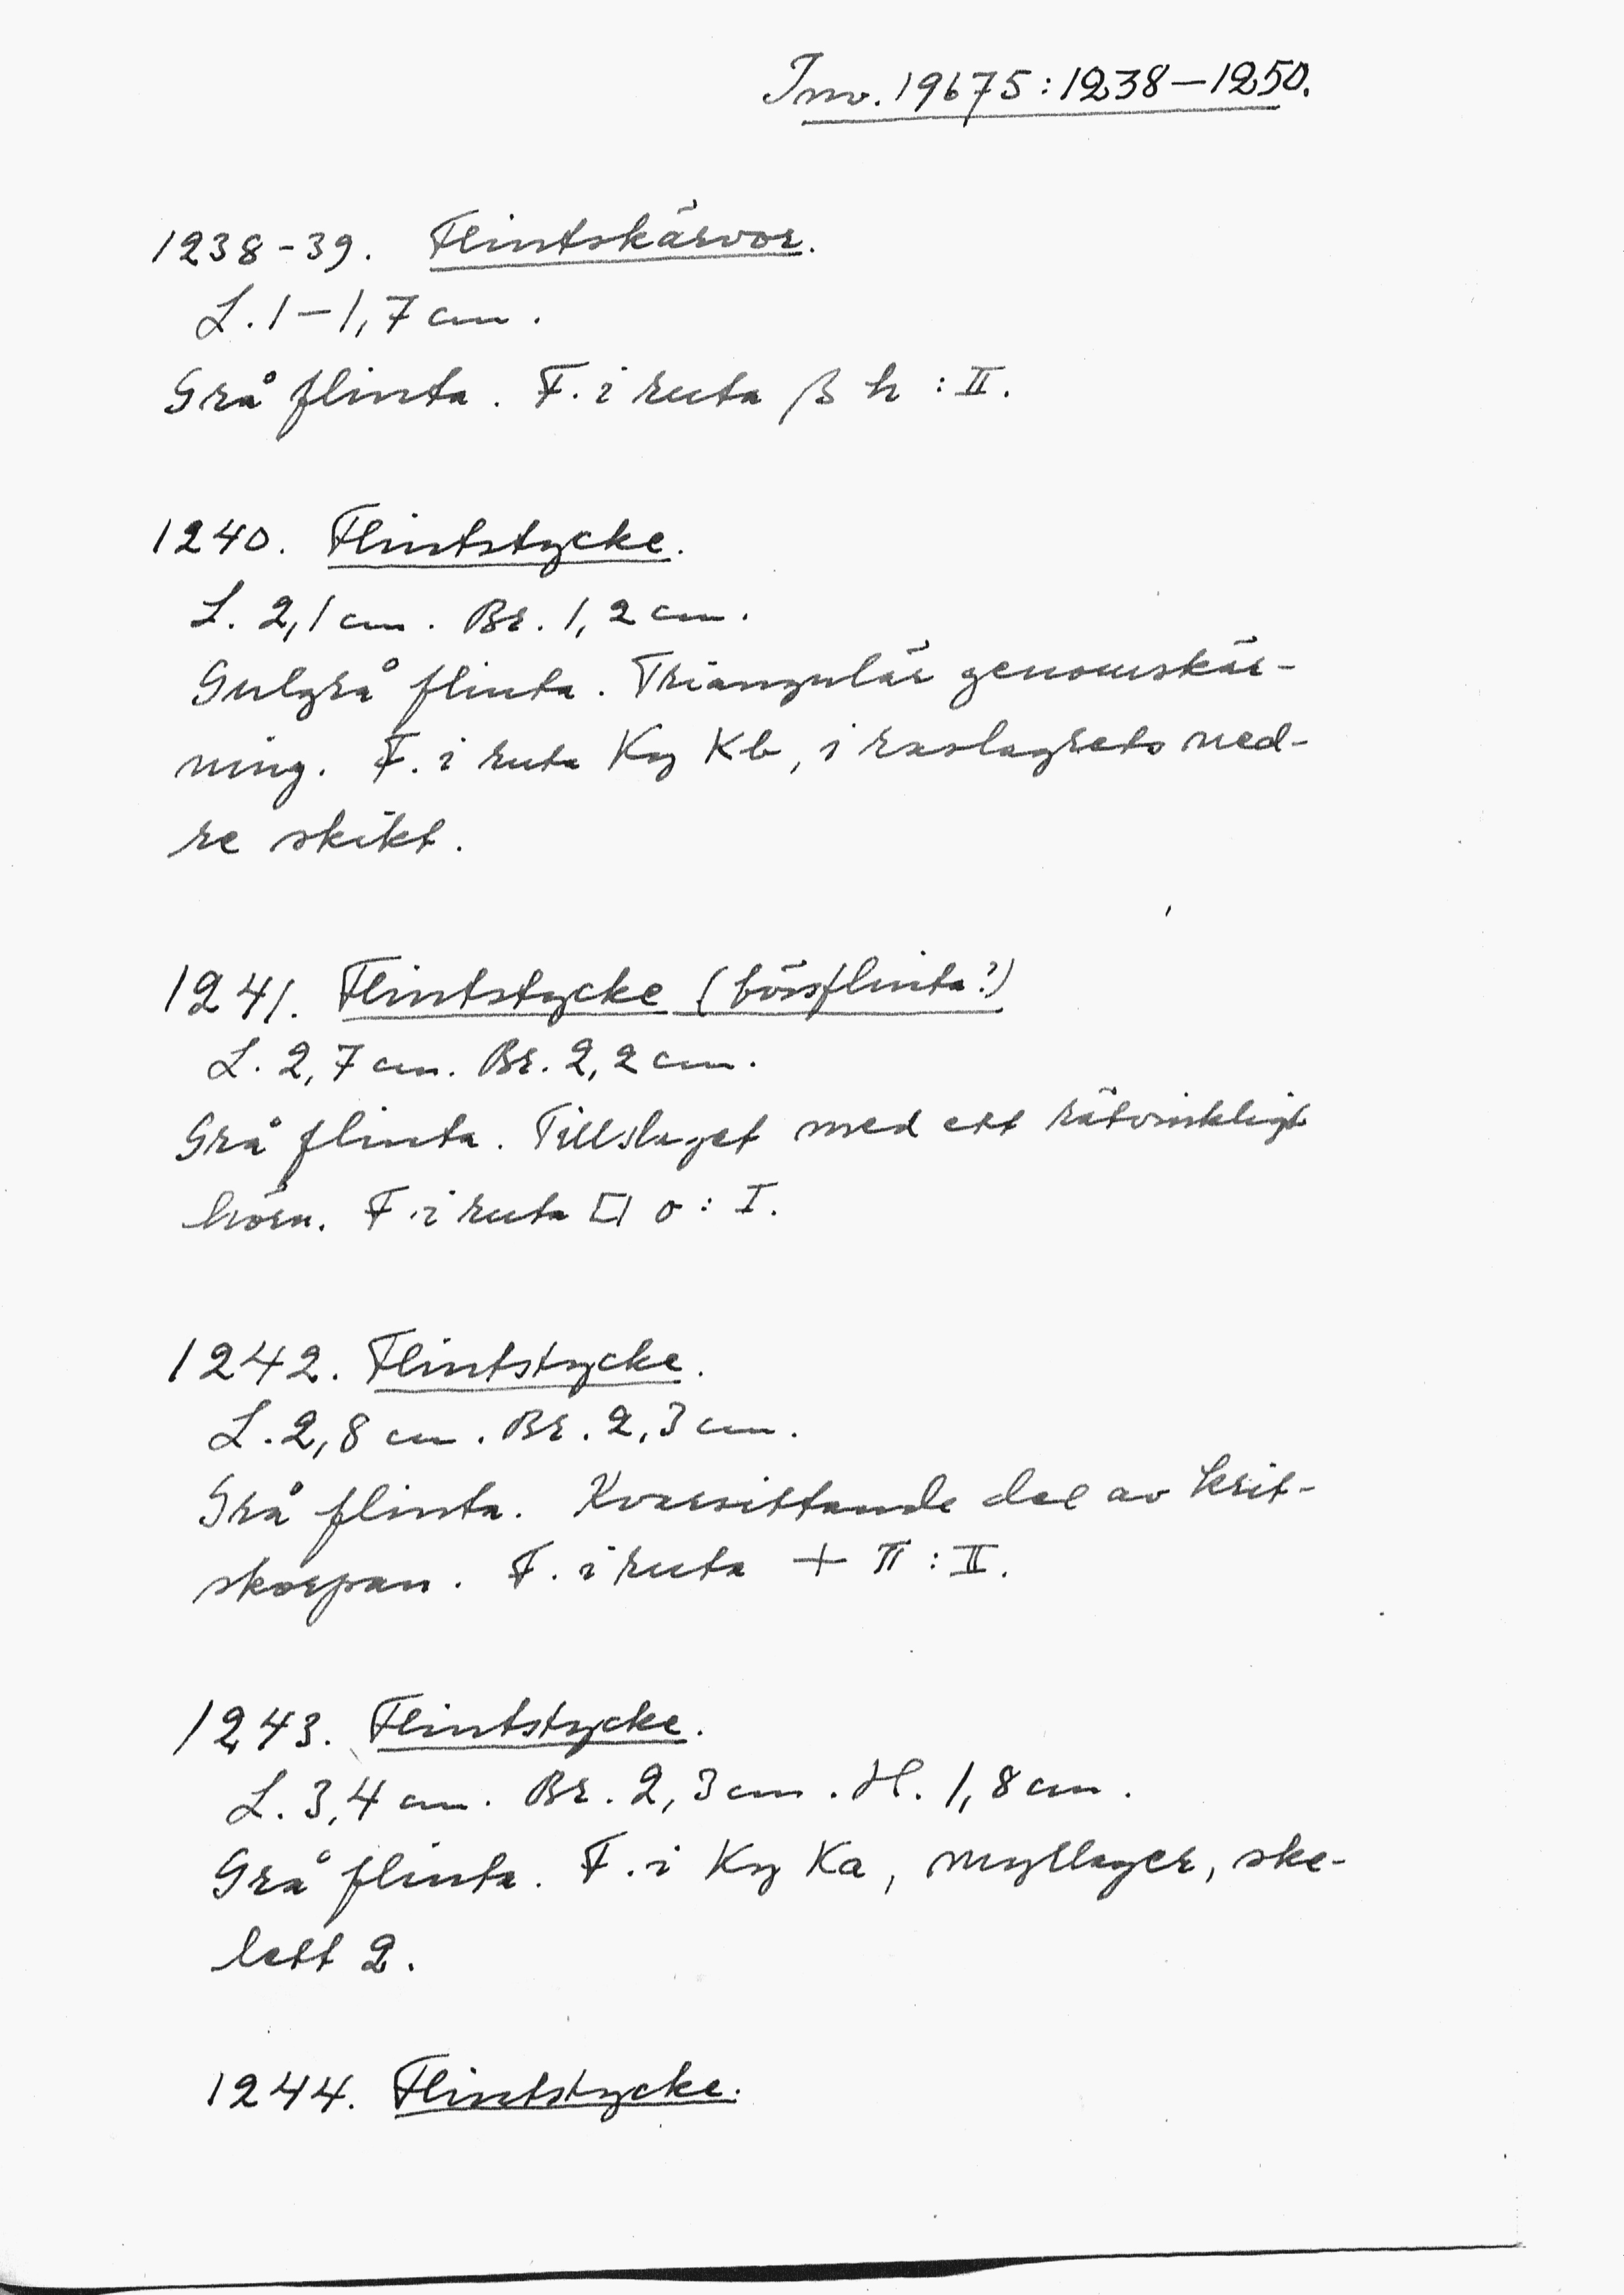 Inv. 19675:1238—1250.
1238-39. Flintskärvor.
L. 1—1,7 cm.
Grå flinta. F. i ruta β h : II.
1240. Flintstycke.
L. 2,1 cm. Br. 1,2 cm.
Gulgrå flinta. Triangulär genomskär-
ning. F. i ruta Ky Kb, i raslagrets ned-
re skikt.
1241. Flintstycke (bössflinta?)
L. 2,7 cm. Br. 2,2 cm.
Grå flinta. Tillslaget med ett rätvinkligt
hörn. F. i ruta □ o : I.
1242. Flintstycke.
L. 2,8 cm. Br. 2,3 cm.
Grå flinta. Kvarsittande del av krit-
skorpan. F. i ruta + π : II.
1243. Flintstycke.
L. 3,4 cm. Br. 2,3 cm. H. 1,8 cm.
Grå flinta. F. i Ky Ka, myllager, ske-
lett 2.
1244. Flintstycke.